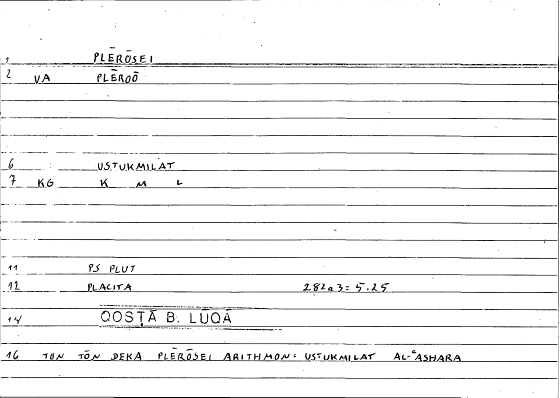 1 PLĒRŌSEI
2 VA PLĒROŌ
6 USTUKMILAT
7 KG K M L
11 PS PLUT
12 PLACITA 282a3=5.25
14 QOSṬĀ B. LŪQĀ
16 TON TŌN DEKA PLĒRŌSEI ARITHMON: USTUKMILAT AL-ʿASHARA